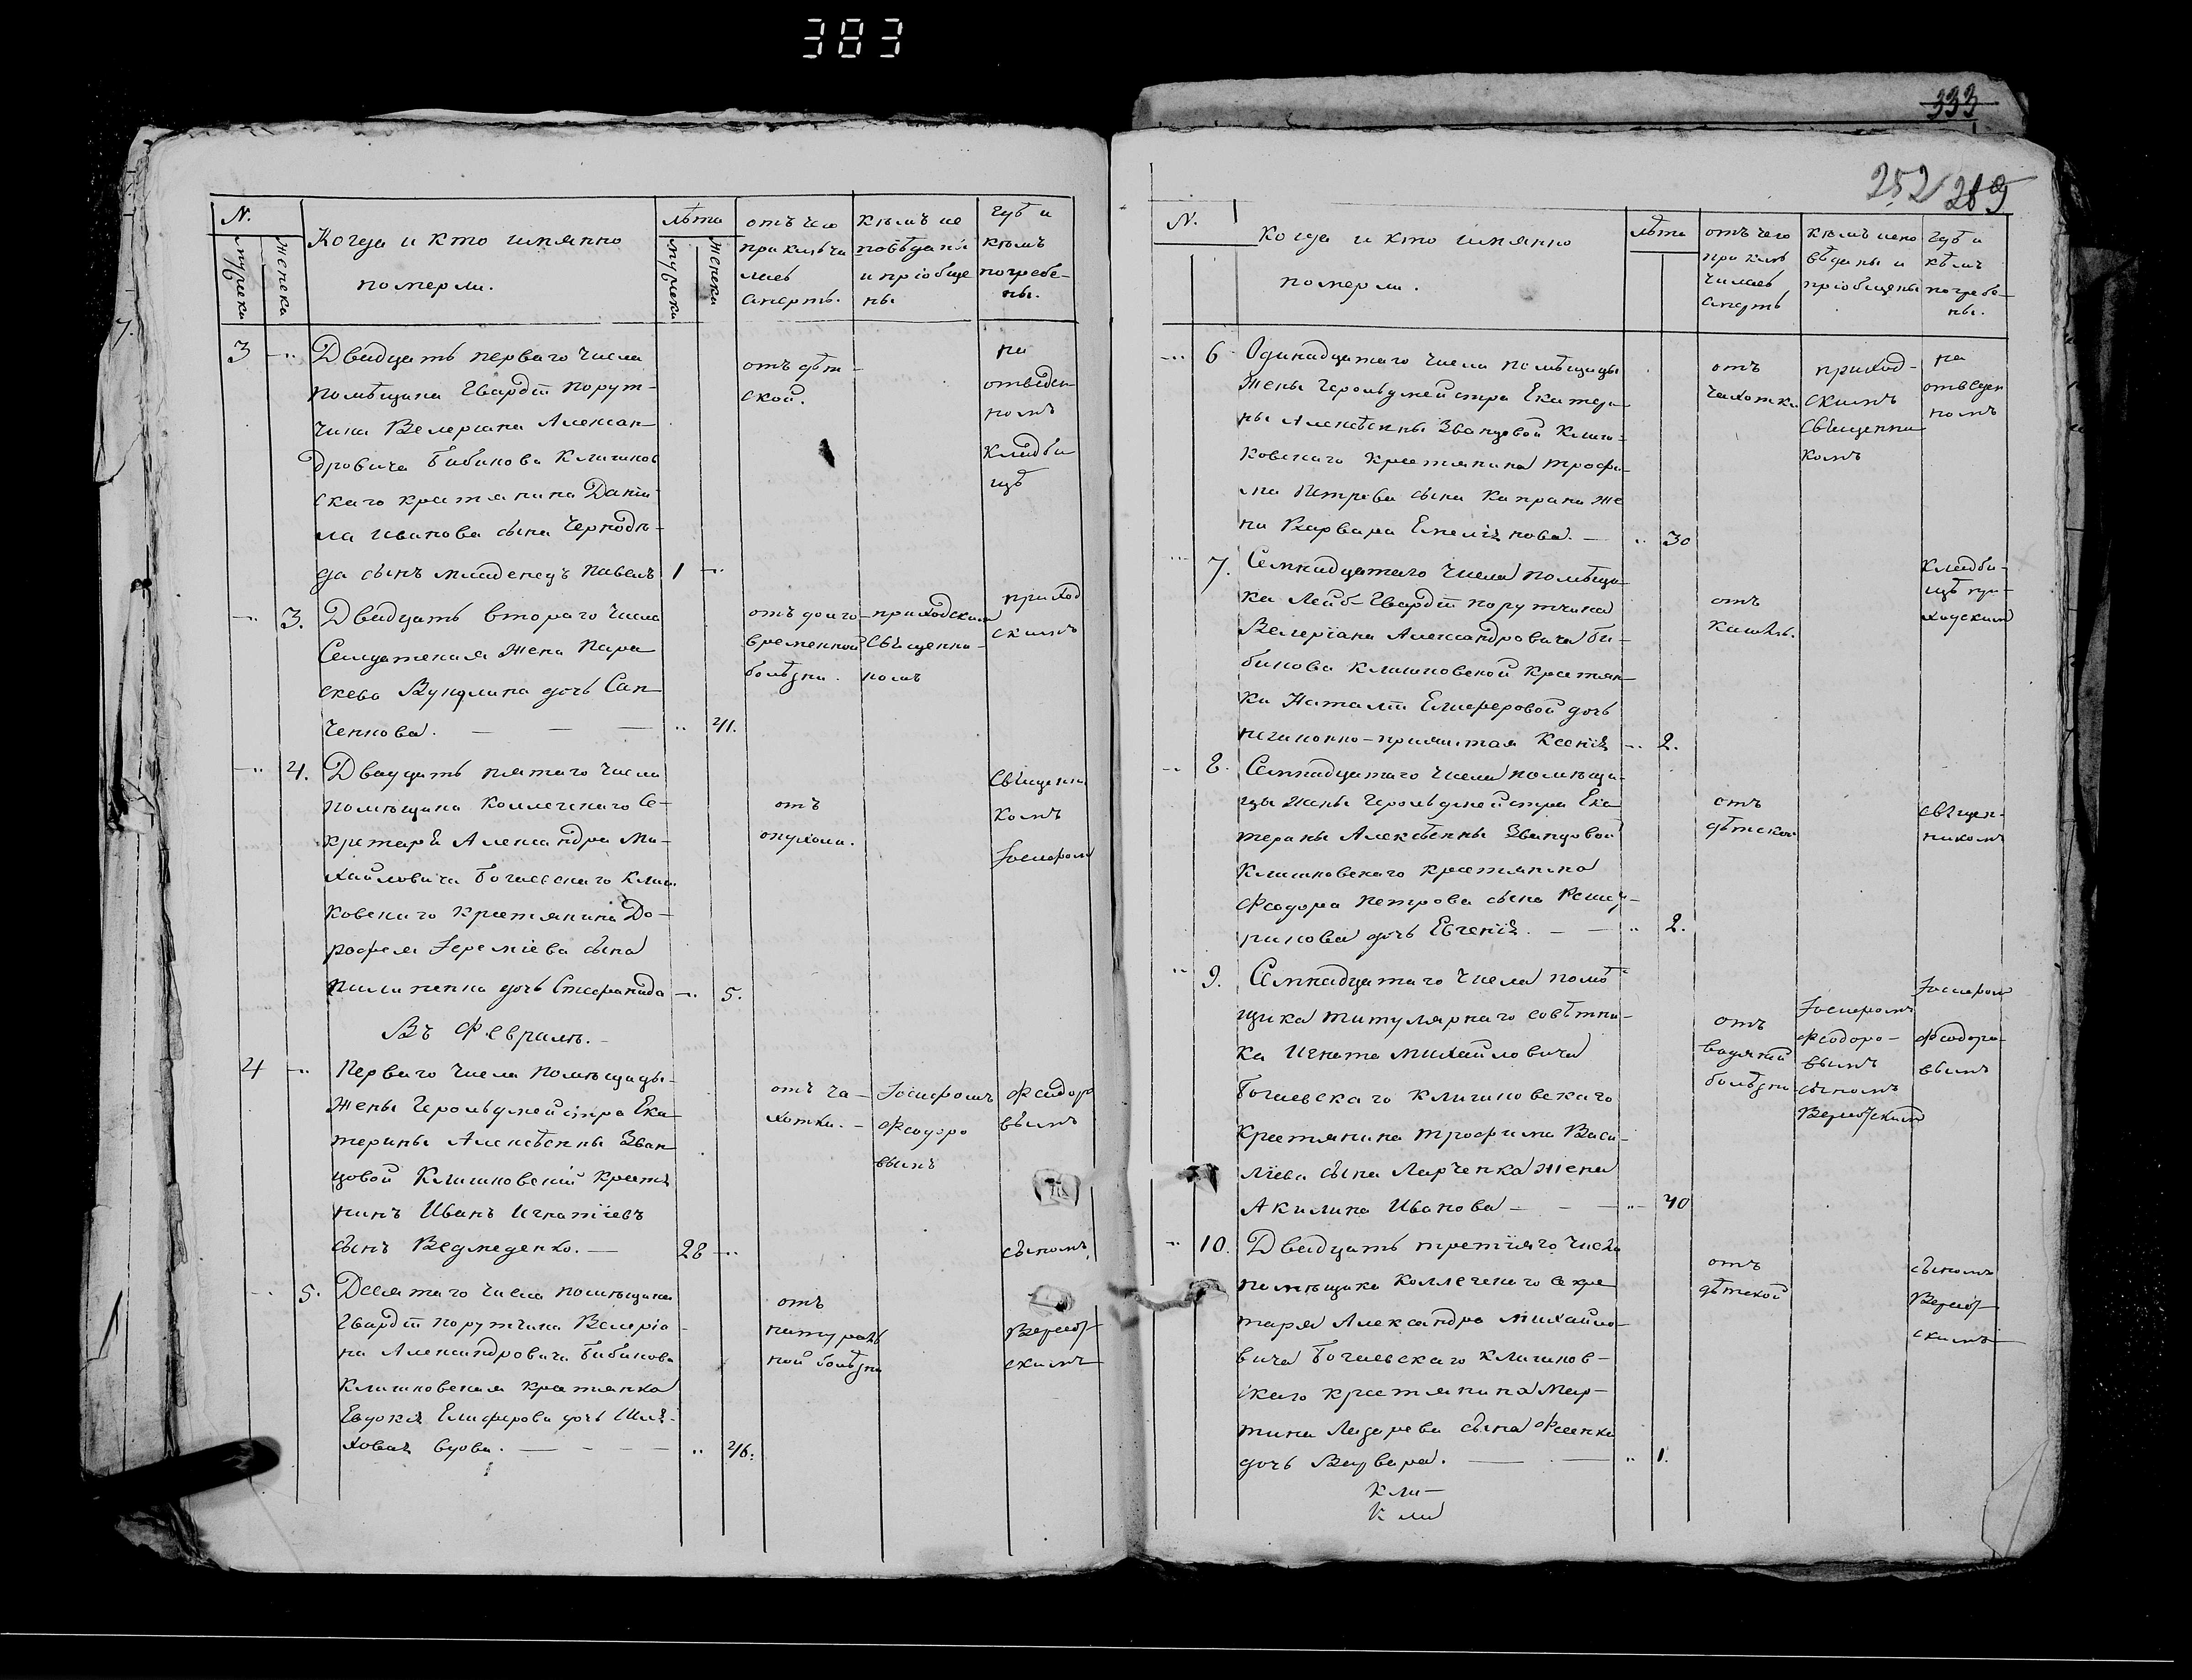 383
333
252 289
N.
мужска
женска
Когда и кто имянно
померли.
лѣта
мужска
женска
отъ чего
приключи
лась
смерть.
кѣмъ ис
повѣданы
и пріобще
ны
гдѣ и
кѣмъ
погребе-
ны.
3
Двадцать перваго числа
помѣщика Гвардіи порут-
чика Велеріана Алексан
дровича Бибикова Клишков
скаго крестьянина Данiи-
ла Иванова сына
да сынъ младенецъ Павелъ 1
отъ дѣт-
ской.
на
отведен
номъ
кладби
щѣ
3. Двадцать втораго числа
жена Пара
скева дочь Сап
ченкова. 41.
отъ долго-
временной
болѣзни.
приходским
священни-
комъ
приход
скимъ
4. Двадцать пятаго числа
помѣщика Коллежскаго Се-
кретаря Александра Ми-
хайловича Богаевскаго Клиш
ковскаго крестьянина До-
рофея Іереміева сына
Пилипенка дочь Стефанида 5.
отъ
опухоли.
священни
комъ
Іосифом
Въ Февралѣ.
4 Перваго числа помѣщицы-
жены Герольдмейстра Ека-
терины Алексѣевны Зван
цовой Клишковскій крестья
нинъ Иванъ Игнатіевъ
сынъ Ведмеденко. 28
отъ ча-
хотки.
Іосифомъ
Феодоро
вымъ
Феодор
вымъ
сыномъ
5. Десятаго числа помѣщика
Гвардіи порутчика Велеріа-
на Александровича Бибикова
Клишковская крестьянка
Евдокія Елиферова дочь
вдова. 46.
отъ
натураль
ной болѣзни
скимъ
N.
Когда и кто имянно
померли.
лѣта
отъ чего
приклю
чилась
смерть
кѣмъ испо
вѣданы и
пріобщены
гдѣ и
кѣмъ
погребе-
ны.
6 Одинадцатаго числа помѣщицы
жены Герольдмейстра Екатери-
ны Алексѣевны Званцовой Клиш-
ковскаго крестьянина Трофи-
ма Петрова сына Капрана же
на Варвара Емеліянова. 30
отъ
чахотки
приход-
скимъ
священни
комъ
на
отведен
номъ
7. Семнадцатаго числа помѣщи-
ка Лейб-Гвардіи порутчика
Велеріана Александровича Би-
бикова Клишковской крестьян-
ки Наталіи Елиферовой дочь
незаконно-прижитая Ксенія 2.
отъ
кашля.
кладби-
щѣ при-
ходским
8. Семнадцатаго числа помѣщи-
цы жены Герольдмейстра Ека
терины Алексѣевны Званцовой
Клишковскаго крестьянина
Феодора Петрова сына
дочь Евгенія. 2.
отъ
дѣтской
священ-
никомъ
9. Семнадцатаго числа помѣ-
щика титулярнаго совѣтни-
ка Игната Михайловича
Богаевскаго Клишковскаго
крестьянина Трофима Васи-
ліева сына Ларченка жена
Акилина Иванова 40
отъ
водяной
болѣзни
Іосифомъ
Феодоро-
вымъ
сыномъ
Іосифом
Феодоро-
вымъ
10. Двадцать третіяго числа
помѣщика Коллежскаго Секре
таря Александра Михайло-
вича Богаевскаго Клишков-
скаго крестьянина Мар-
тина Лазарева сына
дочь Варвара. 1.
отъ
дѣтской
сыномъ
скимъ
Кли-
Кли